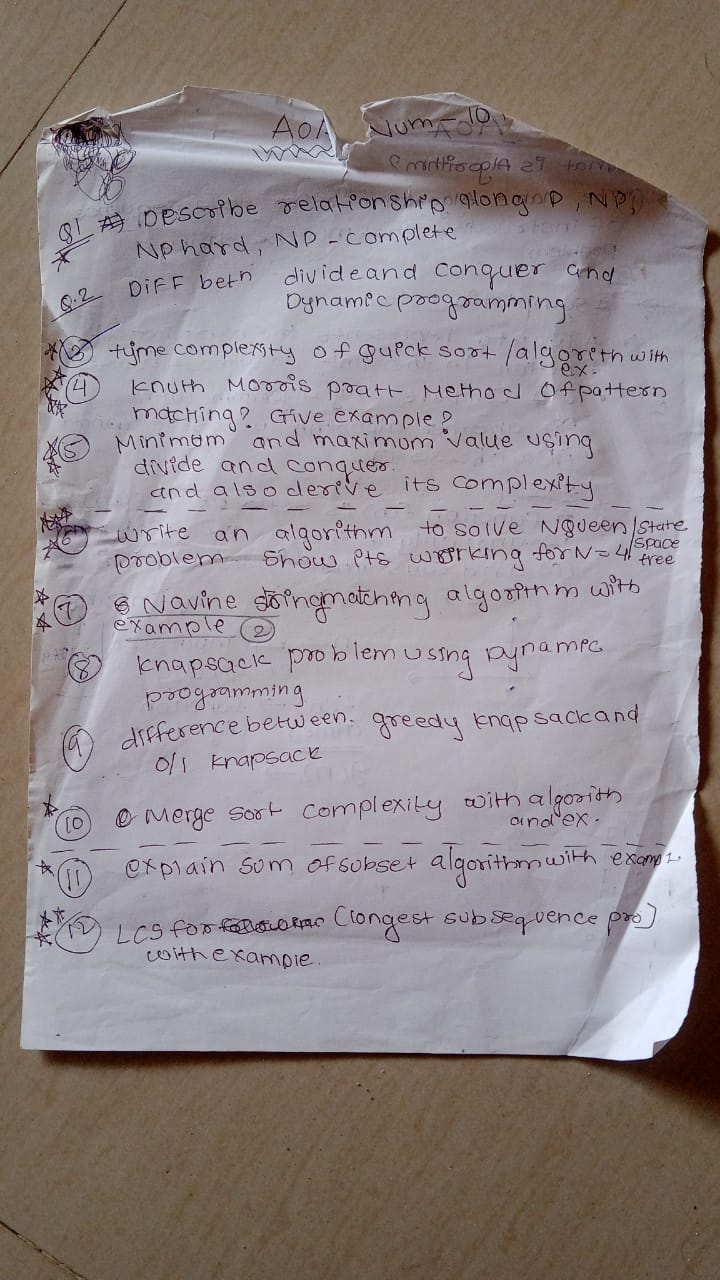 AOA Num - 10
Q1 Describe relationship along P, NP,
NP hard, NP - complete
Q.2 Diff betn divide and conquer and
Dynamic programming
3 tyme complexity of quick sort / algorith with
ex.
4 Knuth Morris pratt Method of pattern
matching? Give example?
5 Minimum and maximum value using
divide and conquer.
and also derive its complexity
6 write an algorithm to solve NQueen / State
problem. Show its working for N = 4 / space
tree
7 Navine stoingmatching algorithm with
example 2
8 knapsack problem using Dynamic
programming
9 difference between. greedy knapsack and
0/1 knapsack
10 Merge sort complexity with algorith
and ex.
11 explain sum of subset algorithm with
12 LCS for (longest subsequence pro]
with example.